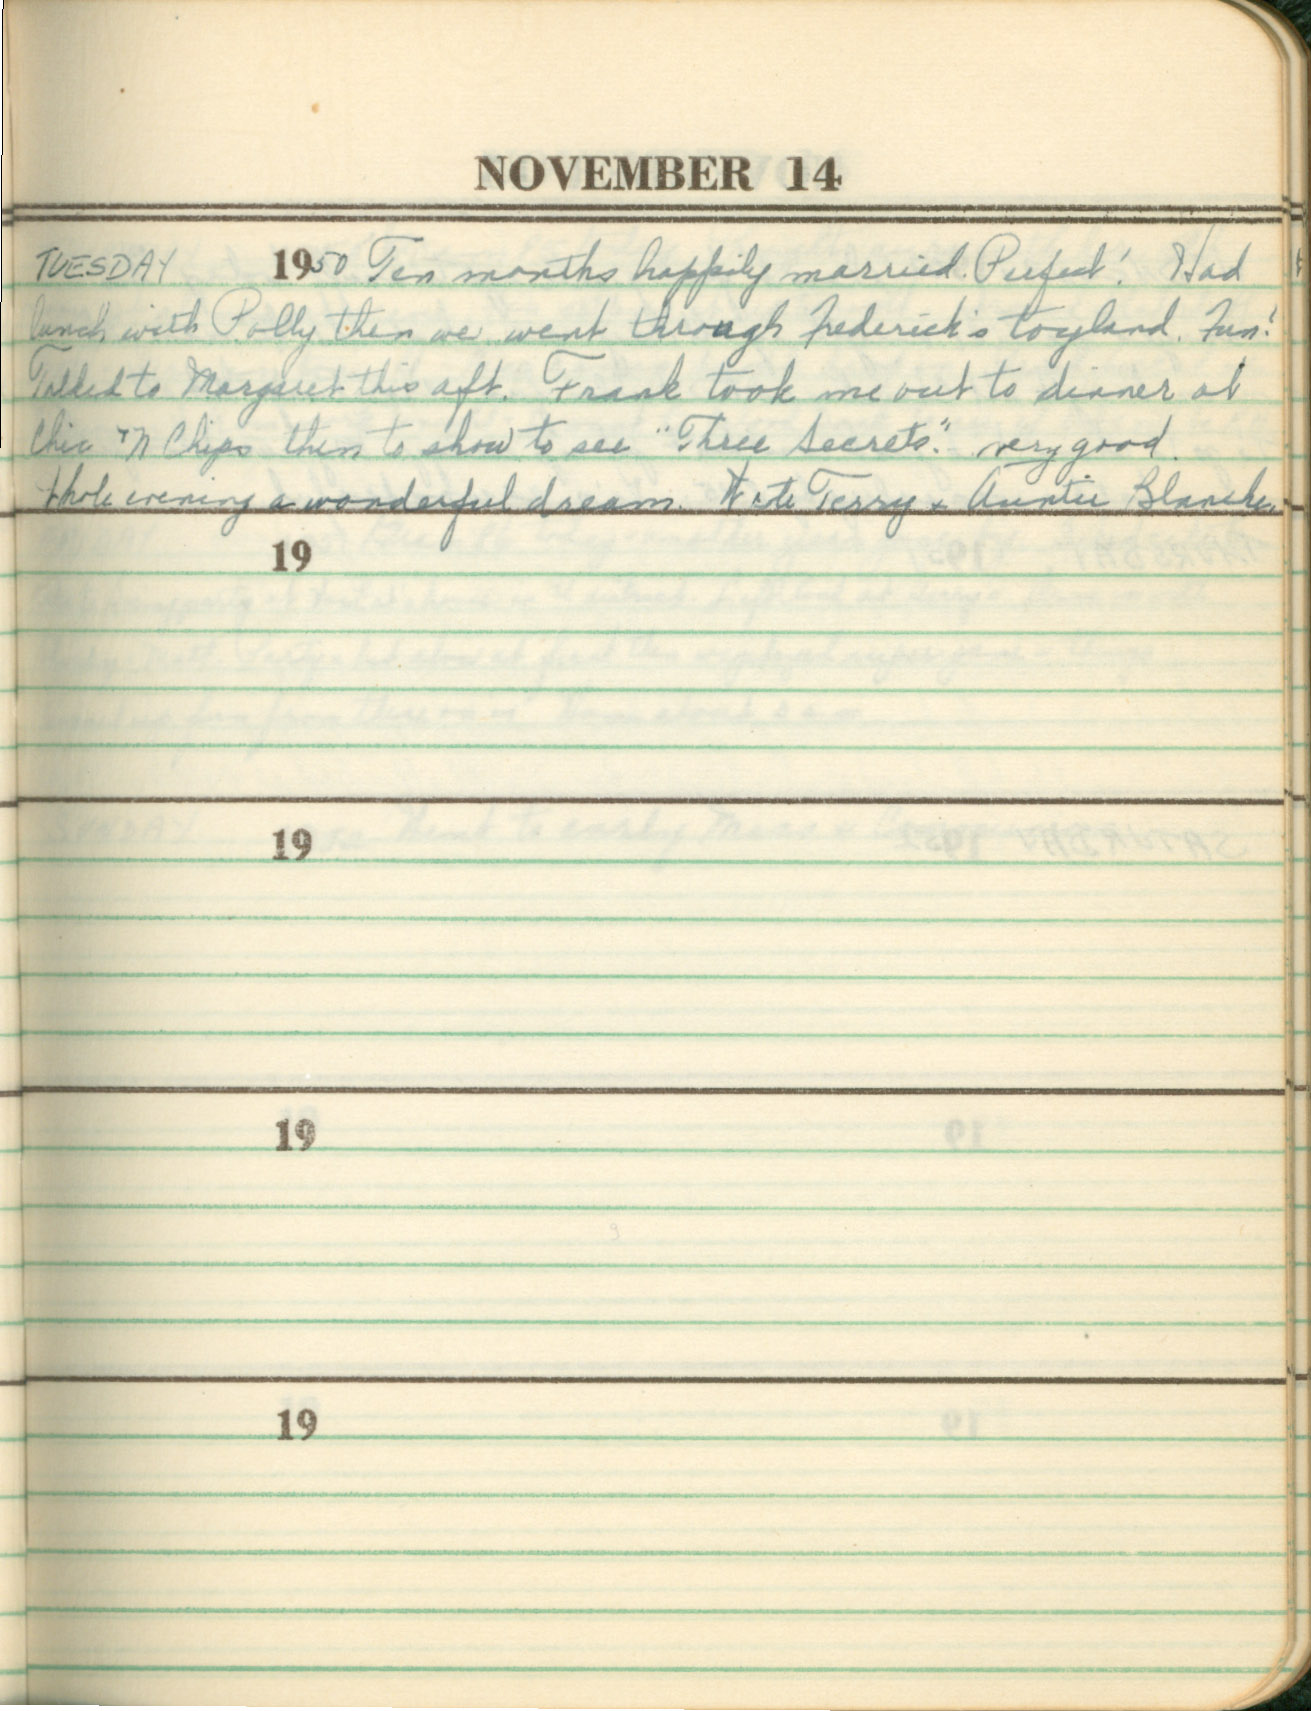 NOVEMBER 14
TUESDAY 1950 Ten months happily married. Perfect! Had
lunch with Polly then we went through Frederick's toyland. Fun!
Talked to Margaret this aft. Frank took me out to dinner at
Chic 'N Chips then to show to see "Three Secrets". very good.
Whole evening a wonderful dream. Wrote Terry + Auntie Blanche.
19
19
19
19